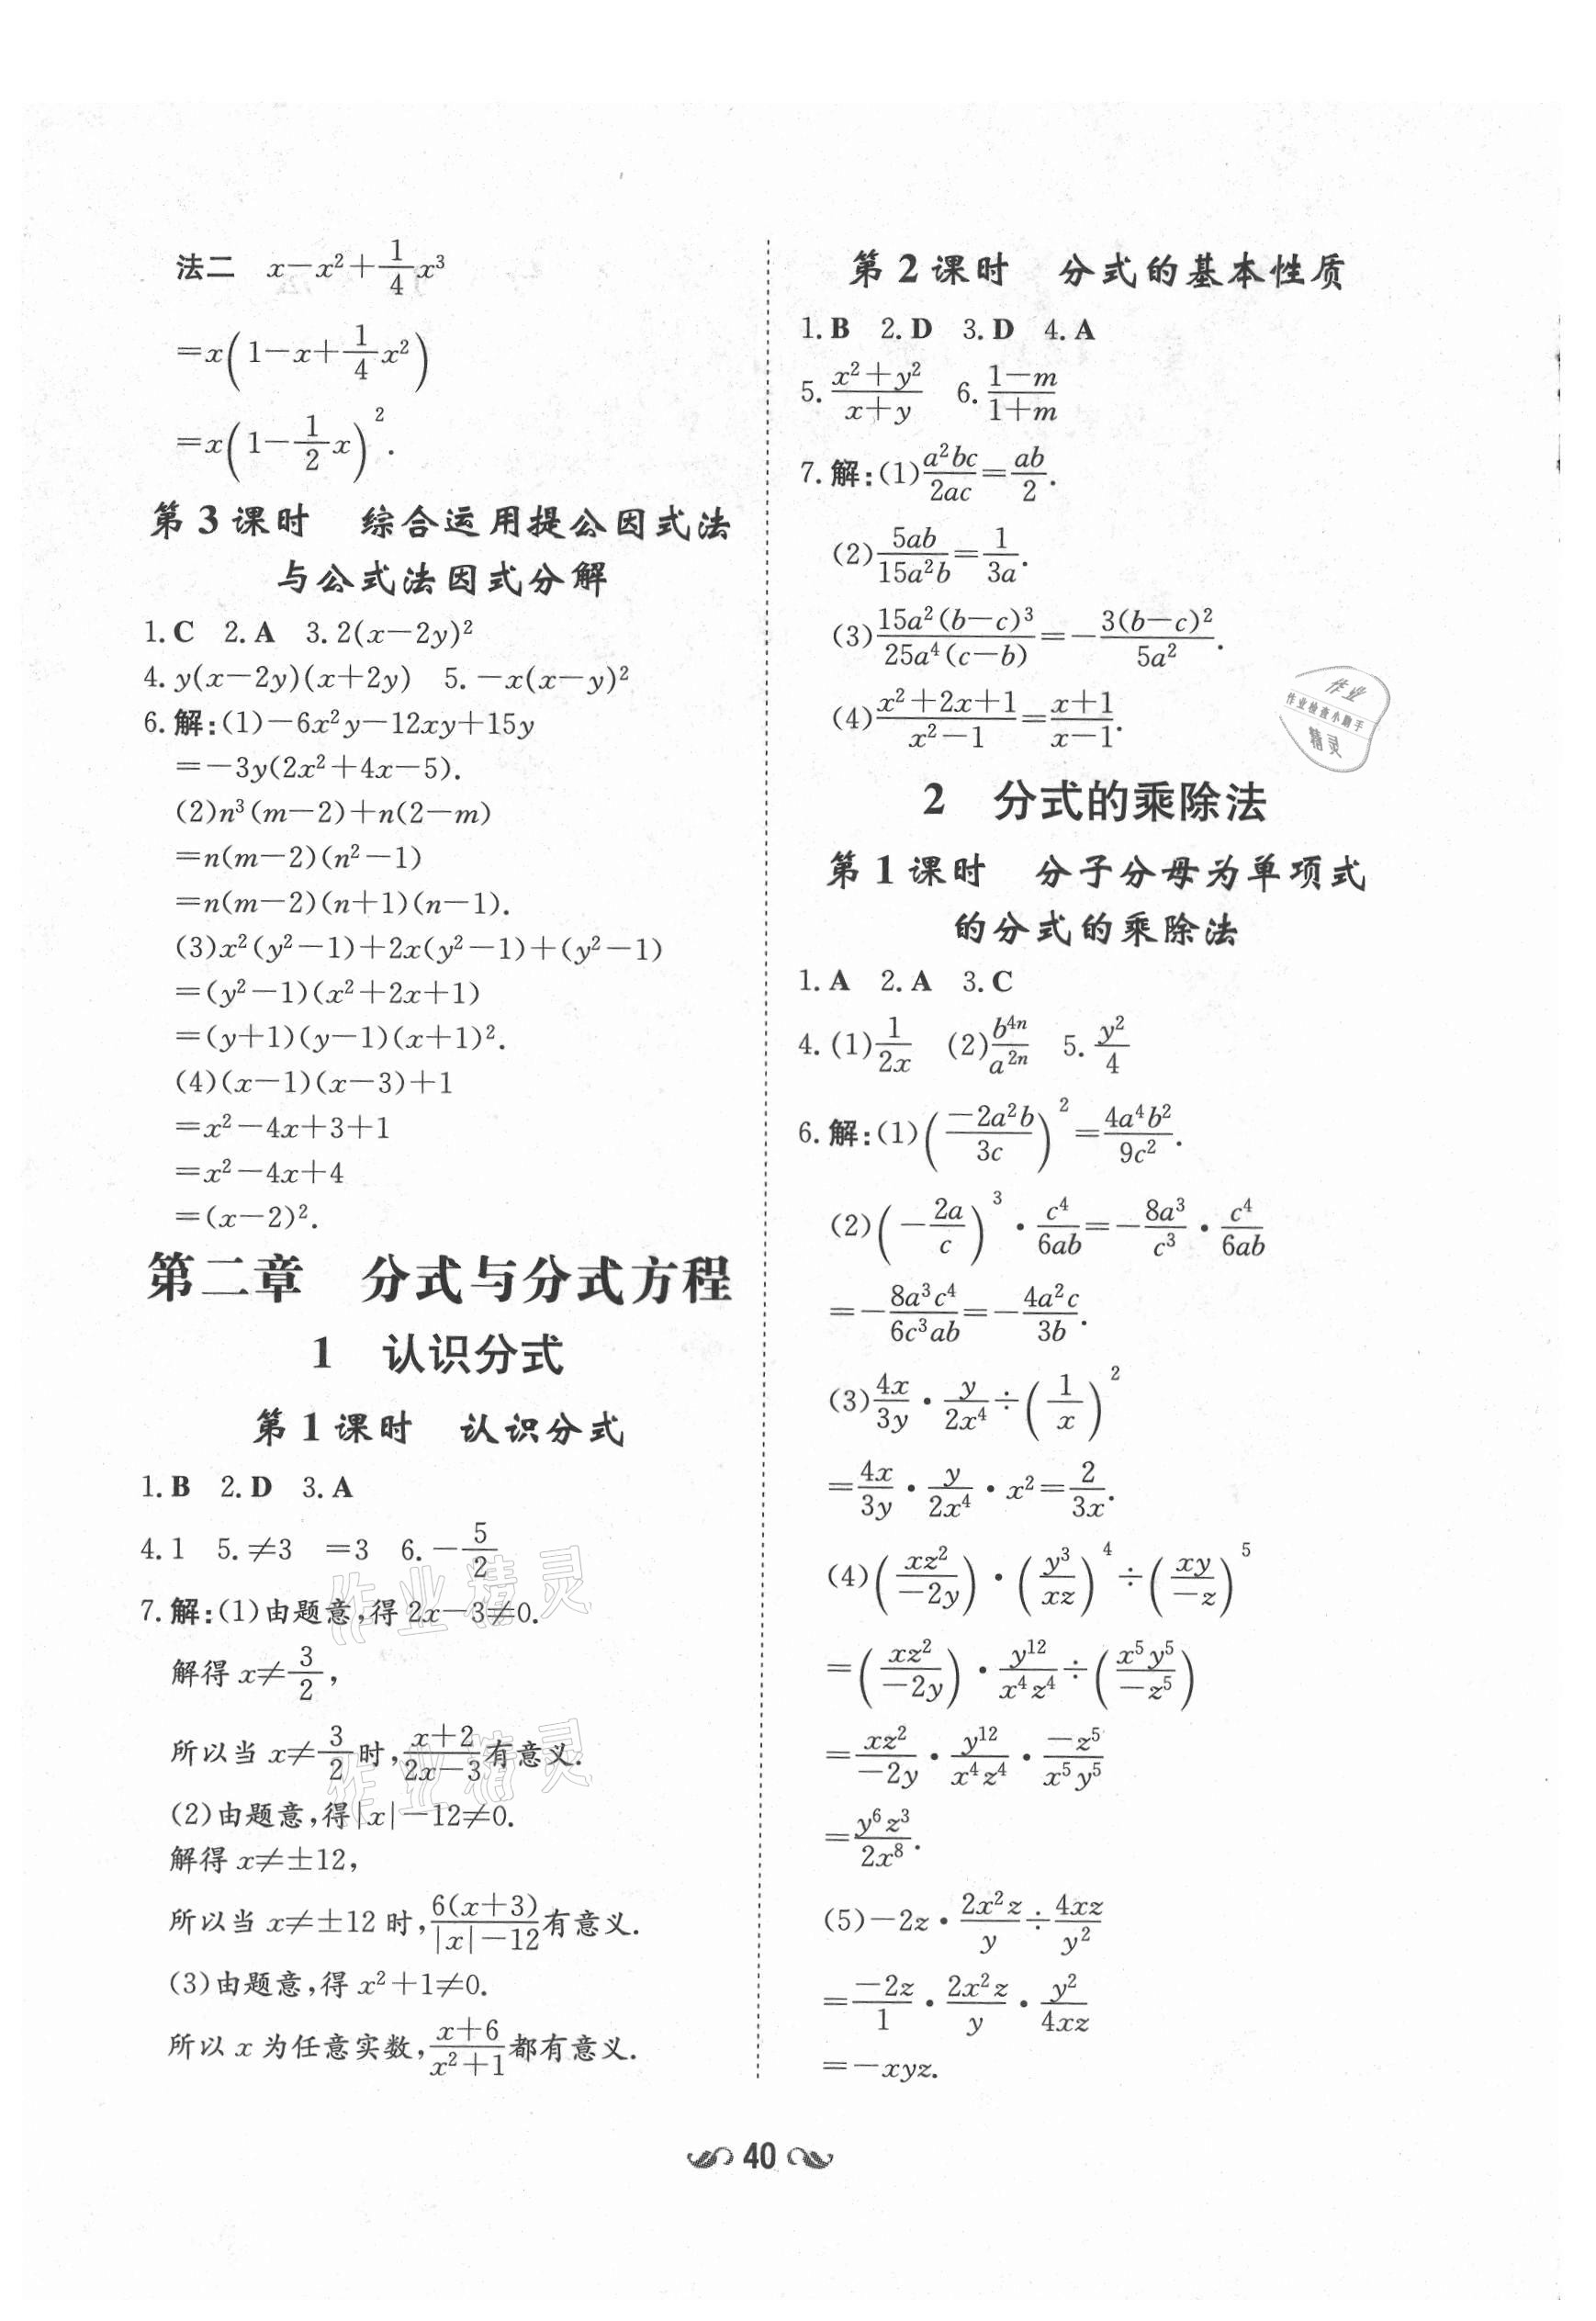 法二 x-x²+\frac{1}{4}x³
=x(1-x+\frac{1}{4}x²)
=x(1-\frac{1}{2}x)².
第3课时 综合运用提公因式法
与公式法因式分解
1.C 2.A 3.2(x-2y)²
4.y(x-2y)(x+2y) 5.-x(x-y)²
6.解:(1)-6x²y-12xy+15y
=-3y(2x²+4x-5).
(2)n³(m-2)+n(2-m)
=n(m-2)(n²-1)
=n(m-2)(n+1)(n-1).
(3)x²(y²-1)+2x(y²-1)+(y²-1)
=(y²-1)(x²+2x+1)
=(y+1)(y-1)(x+1)².
(4)(x-1)(x-3)+1
=x²-4x+3+1
=x²-4x+4
=(x-2)².
第二章 分式与分式方程
1 认识分式
第1课时 认识分式
1.B 2.D 3.A
4.1 5.≠3 =3 6.-\frac{5}{2}
7.解:(1)由题意,得2x-3≠0.
解得x≠\frac{3}{2},
所以当x≠\frac{3}{2}时,\frac{x+2}{2x-3}有意义.
(2)由题意,得|x|-12≠0.
解得x≠±12,
所以当x≠±12时,\frac{6(x+3)}{|x|-12}有意义.
(3)由题意,得x²+1≠0.
所以x为任意实数,\frac{x+6}{x²+1}都有意义.
第2课时 分式的基本性质
1.B 2.D 3.D 4.A
5.\frac{x²+y²}{x+y} 6.\frac{1-m}{1+m}
7.解:(1)\frac{a²bc}{2ac}=\frac{ab}{2}.
(2)\frac{5ab}{15a²b}=\frac{1}{3a}.
(3)\frac{15a²(b-c)³}{25a⁴(c-b)}=-\frac{3(b-c)²}{5a²}.
(4)\frac{x²+2x+1}{x²-1}=\frac{x+1}{x-1}.
作业
作业检查小助手
精灵
2 分式的乘除法
第1课时 分子分母为单项式
的分式的乘除法
1.A 2.A 3.C
4.(1)\frac{1}{2x} (2)\frac{b^{4n}}{a^{2n}} 5.\frac{y²}{4}
6.解:(1)(\frac{-2a²b}{3c})²=\frac{4a⁴b²}{9c²}.
(2)(-\frac{2a}{c})³·\frac{c⁴}{6ab}=-\frac{8a³}{c³}·\frac{c⁴}{6ab}
=-\frac{8a³c⁴}{6c³ab}=-\frac{4a²c}{3b}.
(3)\frac{4x}{3y}·\frac{y}{2x⁴}÷(\frac{1}{x})²
=\frac{4x}{3y}·\frac{y}{2x⁴}·x²=\frac{2}{3x}.
(4)(\frac{xz²}{-2y})·(\frac{y³}{xz})⁴÷(\frac{xy}{-z})⁵
=(\frac{xz²}{-2y})·\frac{y¹²}{x⁴z⁴}÷(\frac{x⁵y⁵}{-z⁵})
=\frac{xz²}{-2y}·\frac{y¹²}{x⁴z⁴}·\frac{-z⁵}{x⁵y⁵}
=\frac{y⁶z³}{2x⁸}.
(5)-2z·\frac{2x²z}{y}÷\frac{4xz}{y²}
=\frac{-2z}{1}·\frac{2x²z}{y}·\frac{y²}{4xz}
=-xyz.
作业精灵
作业精灵
40